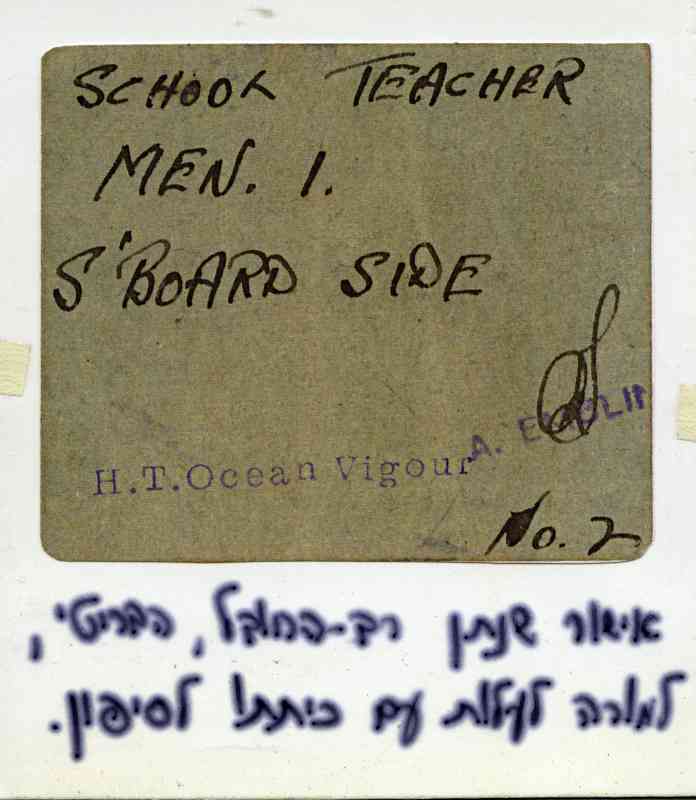 SCHOOL TEACHER
MEN. 1.
S'BOARD SIDE
A.
H.T.Ocean Vigour
No. 2
אישור שנתן רב-החובל, הבריטי,
למורה לעלות עם כיתתו לסיפון.